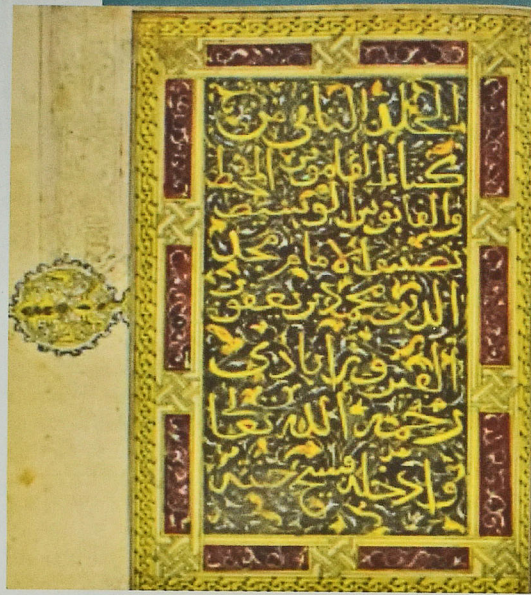 المجلد الثاني من
كتاب القاموس المحيط
والقابوس الوسيط
تصنيف الامام مجد
الدين محمد بن يعقوب
الفيروزابادي
رحمه الله تعالى
وادخله فسيح جنته